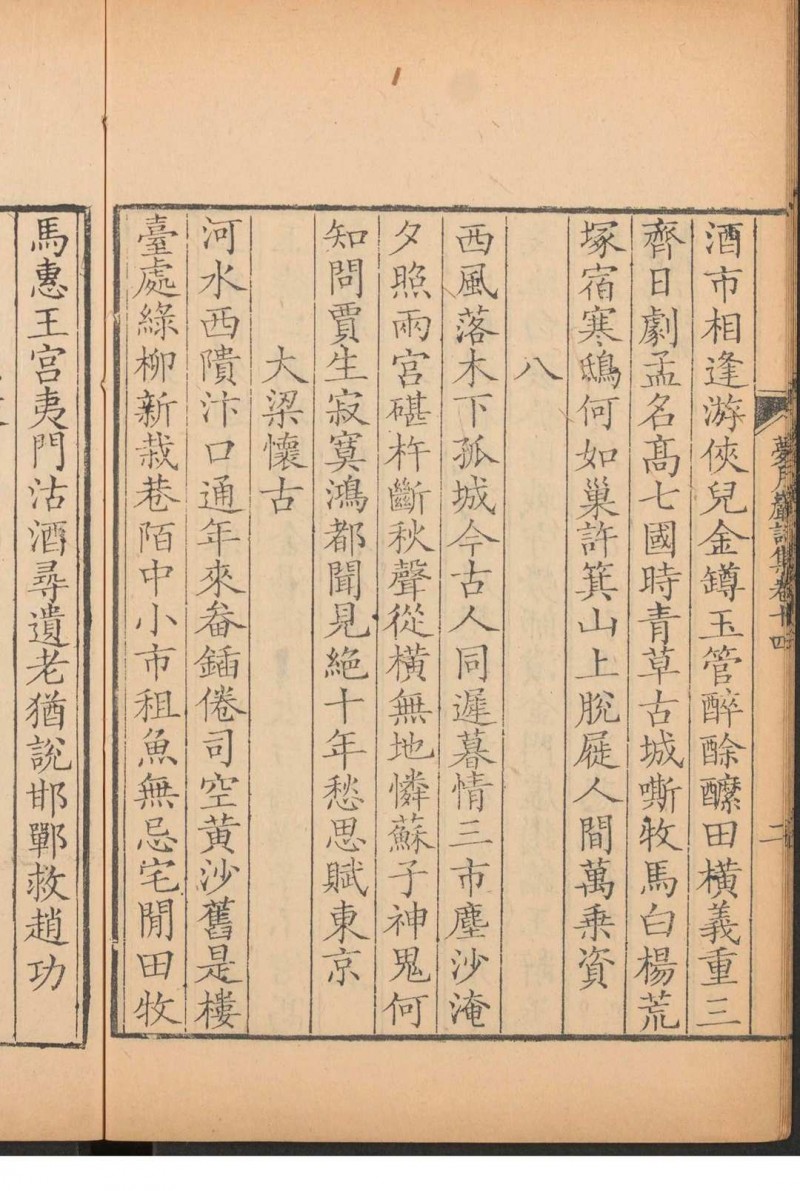 夢月巖詩集卷十四
二
酒市相逢游俠兒金鐏玉管醉酴醿田橫義重三
齊日劇孟名髙七國時青草古城嘶牧馬白楊荒
塚宿寒鴟何如巢許箕山上脫屣人間萬乗資
八
西風落木下孤城今古人同遲暮情三市塵沙淹
夕照兩宮碪杵斷秋聲從橫無地憐蘇子神鬼何
知問賈生寂寞鴻都聞見絕十年愁思賦東京
大梁懷古
河水西隤汴口通年來畚鍤倦司空黃沙舊是樓
臺處綠柳新栽巷陌中小市租魚無忌宅閒田牧
馬惠王宮夷門沽酒尋遺老猶說邯鄲救趙功